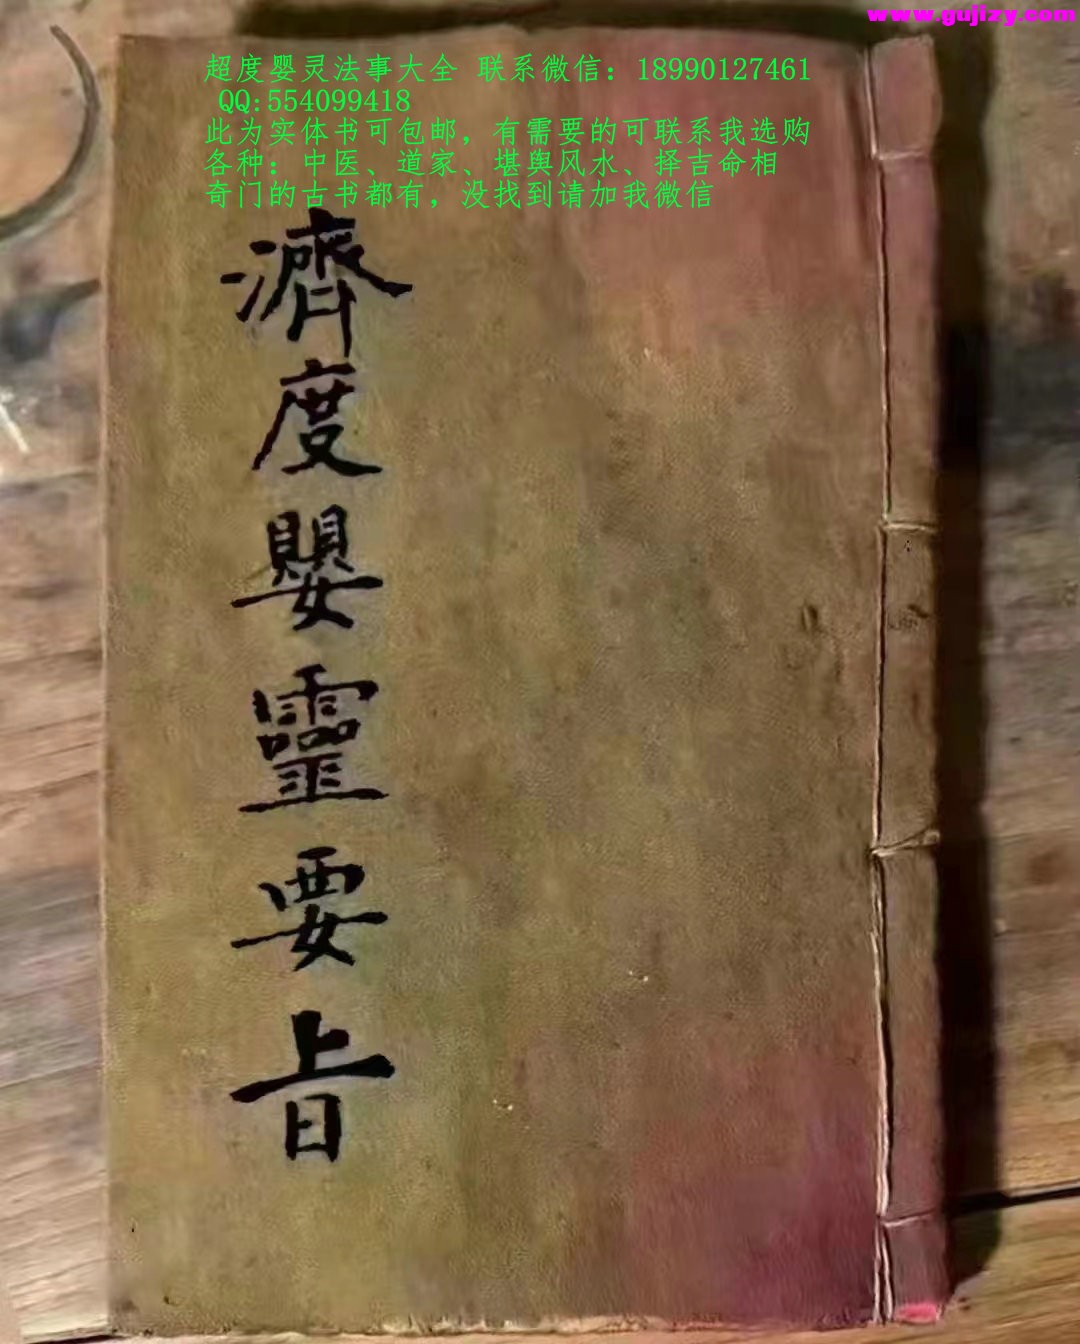 www.gujizy.com
超度婴灵法事大全 联系微信：18990127461
QQ:554099418
此为实体书可包邮，有需要的可联系我选购
各种：中医、道家、堪舆风水、择吉命相
奇门的古书都有，没找到请加我微信
濟度嬰靈要旨